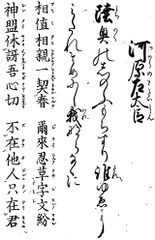 河原左大臣
陸奥のしのふもちすり誰ゆゑに
みたれそめにし我ならなくに
相值相親一契春　爾來忍草字文紛
神盟休訝吾心切　不在他人只在君